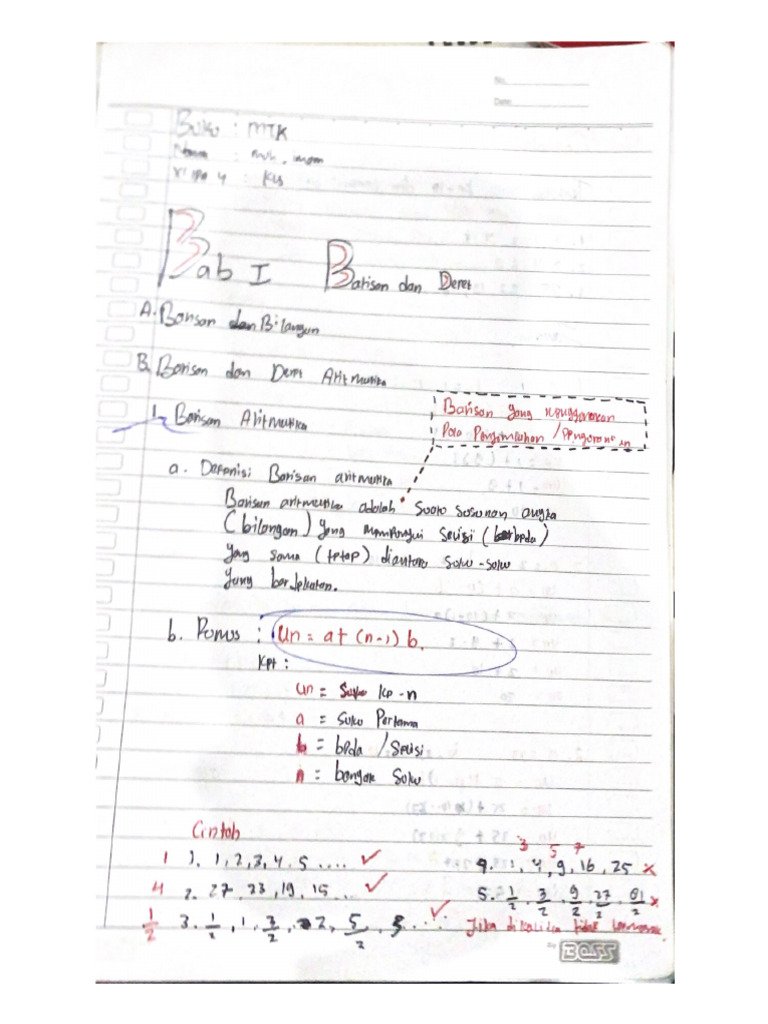 No.
Date:
Buku : MTK
Nama :
XI IPA 4 :
Bab I Barisan dan Deret
A. Barisan dan Bilangan
B. Barisan dan Deret Aritmatika
1. Barisan Aritmatika
Barisan yang menggunakan
Pola Penjumlahan / Pengurangan
a. Defenisi Barisan aritmatika
Barisan aritmatika adalah suatu susunan angka
(bilangan) yang mempunyai selisi (beda)
yang sama (tetap) diantara suku-suku
yang berdekatan.
b. Rumus : Un = a + (n-1) b.
Ket :
Un = Suku ke-n
a = Suku Pertama
b = beda / Selisi
n = banyak Suku
Contoh
1 1. 1, 2, 3, 4, 5 .... ✓
4 2. 27, 23, 19, 15 ... ✓
1/2 3. 1/2, 1, 3/2, 2, 5/2, 3 .... ✓
3 5 7
4. 1, 4, 9, 16, 25 ×
5. 1/2, 3/2, 9/2, 27/2, 81/2 ×
Jika dikalikan tidak
BOSS